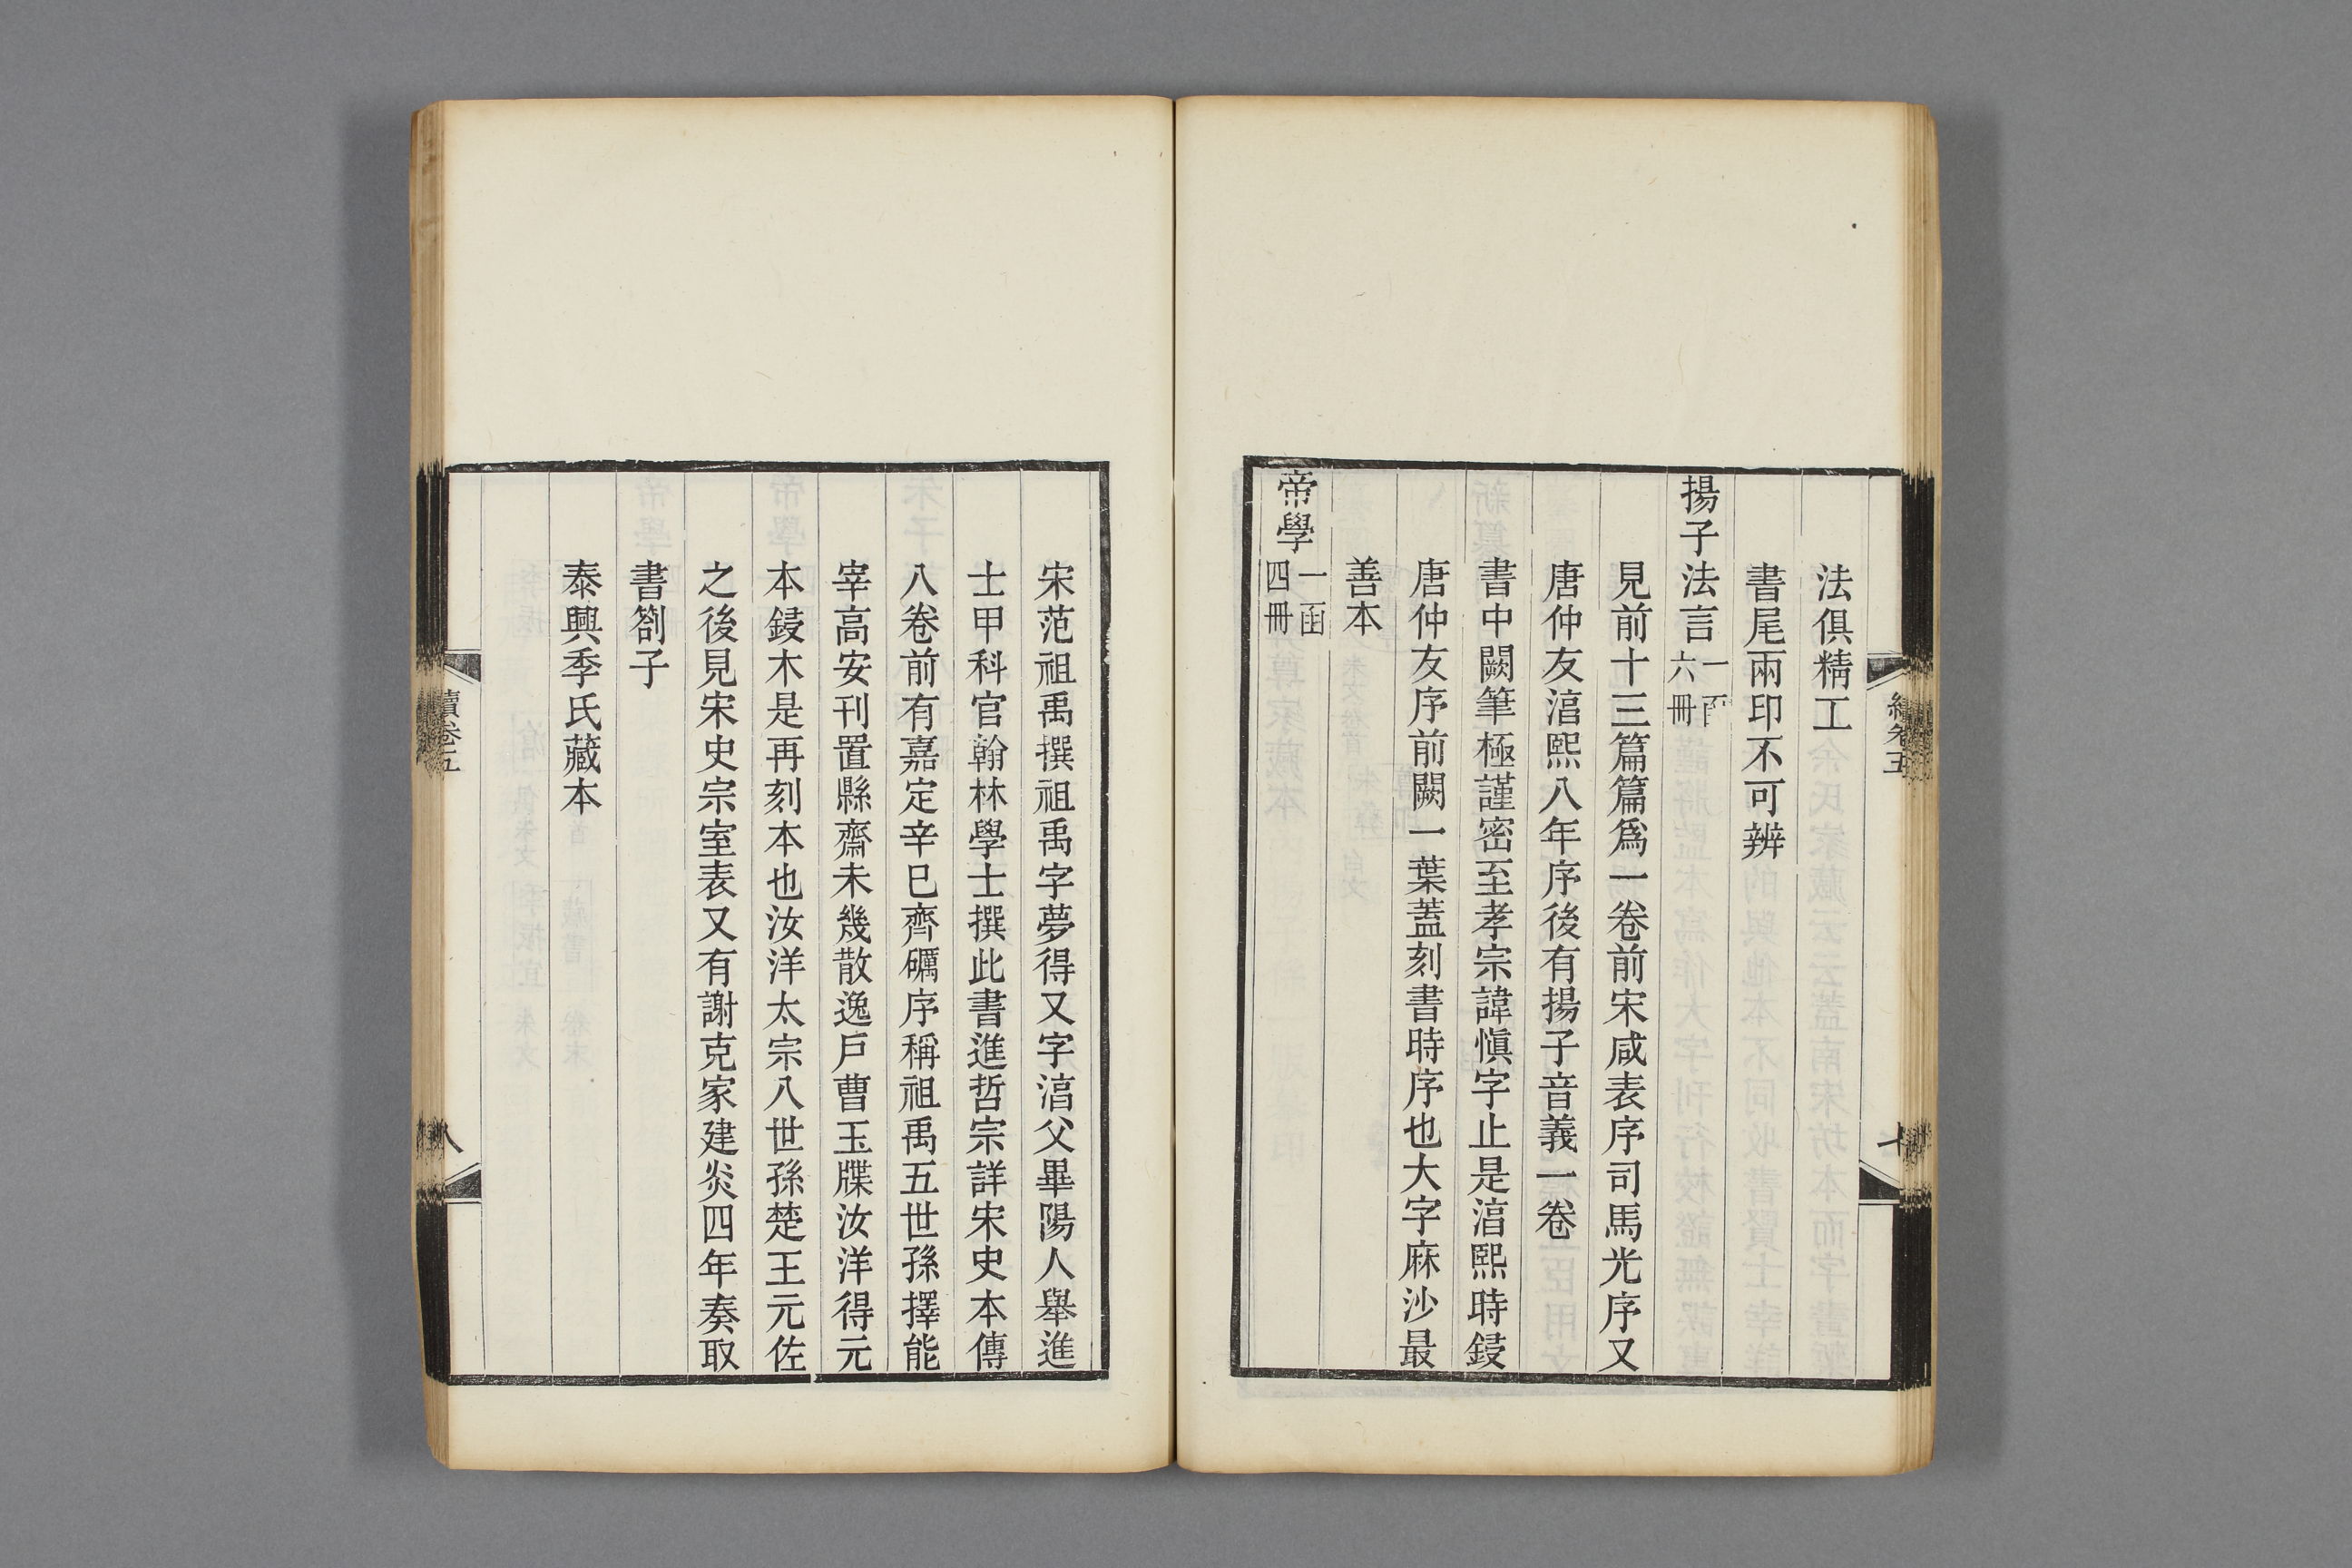 法俱精工
書尾兩印不可辨
揚子法言一函六冊
見前十三篇篇爲一卷前宋咸表序司馬光序又
唐仲友湻熙八年序後有揚子音義一卷
書中闕筆極謹密至孝宗諱愼字止是湻熙時鋟
唐仲友序前闕一葉蓋刻書時序也大字麻沙最
善本
帝學一函四冊
續卷五
七
宋范祖禹撰祖禹字夢得又字湻父華陽人舉進
士甲科官翰林學士撰此書進哲宗詳宋史本傳
八卷前有嘉定辛巳齊礪序稱祖禹五世孫擇能
宰高安刊置縣齋未幾散逸戶曹玉牒汝洋得元
本鋟木是再刻本也汝洋太宗八世孫楚王元佐
之後見宋史宗室表又有謝克家建炎四年奏取
書劄子
泰興季氏藏本
續卷五
八